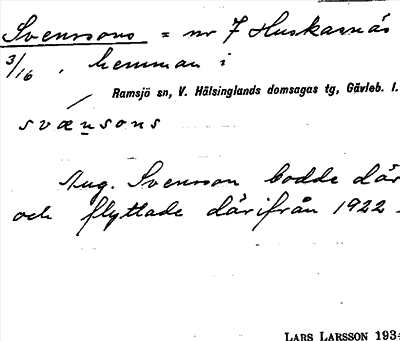 Svenssons = nr 7 Huskasnäs
3/16, hemman i
Ramsjö sn, V. Hälsinglands domsagas tg, Gävleb. l.
svænsons
Aug. Svensson bodde där
och flyttade därifrån 1922.
LARS LARSSON 1934